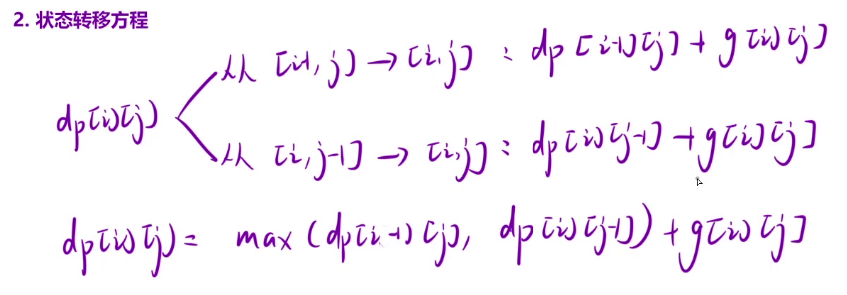 2. 状态转移方程
从 [i-1, j] → [i, j] : dp[i-1][j] + g[i][j]
dp[i][j]
从 [i, j-1] → [i, j] : dp[i][j-1] + g[i][j]
dp[i][j] = max(dp[i-1][j], dp[i][j-1]) + g[i][j]